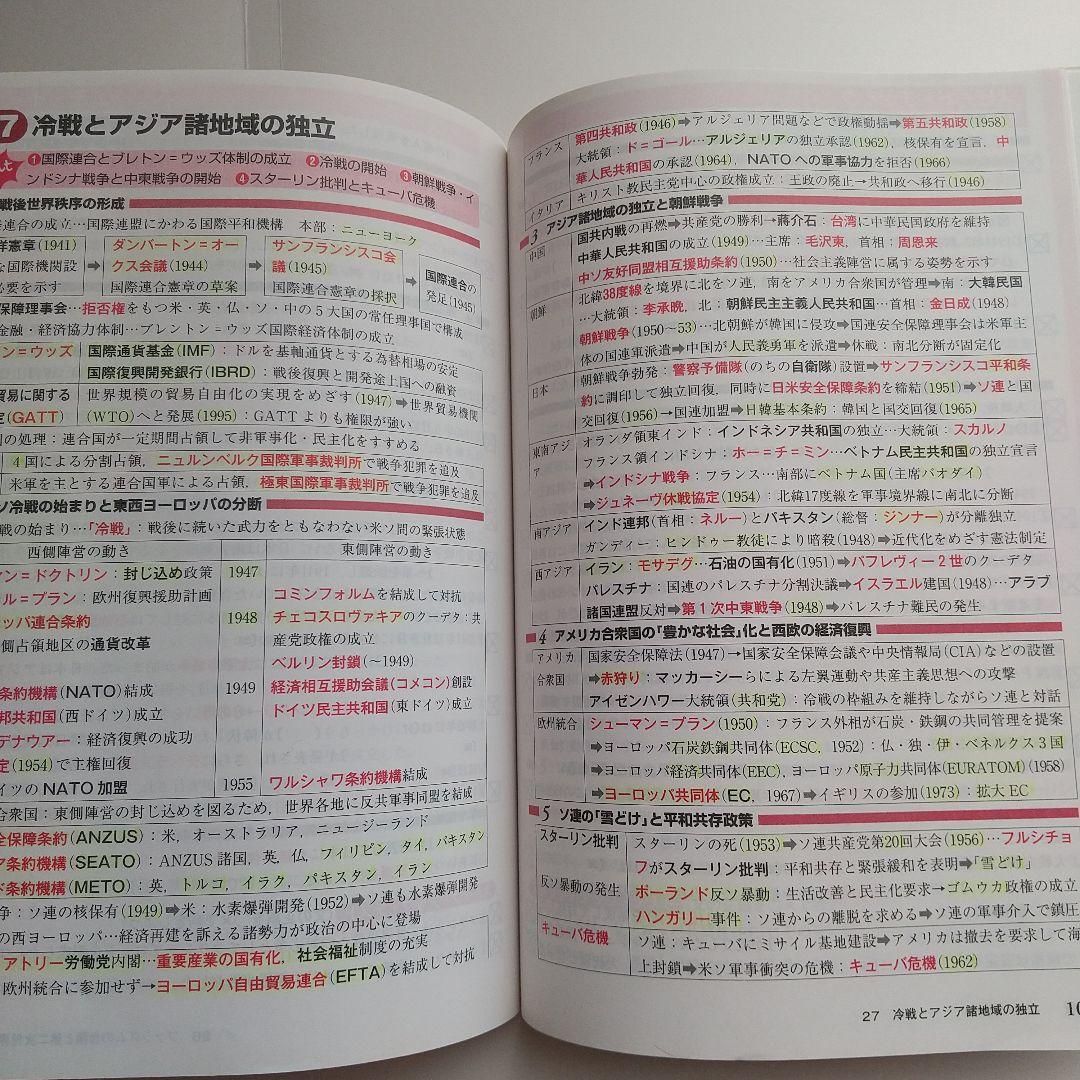 7 冷戦とアジア諸地域の独立
❶国際連合とブレトン=ウッズ体制の成立 ❷冷戦の開始 ❸朝鮮戦争・イ
ンドシナ戦争と中東戦争の開始 ❹スターリン批判とキューバ危機
戦後世界秩序の形成
連合の成立…国際連盟にかわる国際平和機構 本部:ニューヨーク
洋憲章(1941)
な国際機関設
必要を示す
➡
ダンバートン=オー
クス会議(1944)
国際連合憲章の草案
➡
サンフランシスコ会
議(1945)
国際連合憲章の採択
➡
国際連合の
発足(1945)
保障理事会…拒否権をもつ米・英・仏・ソ・中の5大国の常任理事国で構成
金融・経済協力体制…ブレントン=ウッズ国際経済体制の成立
ン=ウッズ 国際通貨基金(IMF):ドルを基軸通貨とする為替相場の安定
国際復興開発銀行(IBRD):戦後復興と開発途上国への融資
貿易に関する 世界規模の貿易自由化の実現をめざす(1947)➡世界貿易機関
定(GATT) (WTO)へと発展(1995):GATTよりも権限が強い
の処理:連合国が一定期間占領して非軍事化・民主化をすすめる
4国による分割占領,ニュルンベルク国際軍事裁判所で戦争犯罪を追及
米軍を主とする連合国軍による占領,極東国際軍事裁判所で戦争犯罪を追及
ソ冷戦の始まりと東西ヨーロッパの分断
戦の始まり…「冷戦」:戦後に続いた武力をともなわない米ソ間の緊張状態
西側陣営の動き 東側陣営の動き
マン=ドクトリン:封じ込め政策 1947
ル=プラン:欧州復興援助計画 コミンフォルムを結成して対抗
ッパ連合条約 1948 チェコスロヴァキアのクーデタ:共
側占領地区の通貨改革 産党政権の成立
ベルリン封鎖(〜1949)
条約機構(NATO)結成 1949 経済相互援助会議(コメコン)創設
邦共和国(西ドイツ)成立 ドイツ民主共和国(東ドイツ)成立
デナウアー:経済復興の成功
定(1954)で主権回復
イツのNATO加盟 1955 ワルシャワ条約機構結成
合衆国:東側陣営の封じ込めを図るため,世界各地に反共軍事同盟を結成
全保障条約(ANZUS):米,オーストラリア,ニュージーランド
ア条約機構(SEATO):ANZUS諸国,英,仏,フィリピン,タイ,パキスタン
ド条約機構(METO):英,トルコ,イラク,パキスタン,イラン
争:ソ連の核保有(1949)➡米:水素爆弾開発(1952)➡ソ連も水素爆弾開発
の西ヨーロッパ…経済再建を訴える諸勢力が政治の中心に登場
アトリー労働党内閣…重要産業の国有化,社会福祉制度の充実
欧州統合に参加せず→ヨーロッパ自由貿易連合(EFTA)を結成して対抗
フランス 第四共和政(1946)➡アルジェリア問題などで政権動揺➡第五共和政(1958)
大統領:ド=ゴール…アルジェリアの独立承認(1962),核保有を宣言,中
華人民共和国の承認(1964),NATOへの軍事協力を拒否(1966)
イタリア キリスト教民主党中心の政権成立:王政の廃止→共和政へ移行(1946)
3 アジア諸地域の独立と朝鮮戦争
中国 国共内戦の再燃➡共産党の勝利→蔣介石:台湾に中華民国政府を維持
中華人民共和国の成立(1949)…主席:毛沢東,首相:周恩来
中ソ友好同盟相互援助条約(1950)…社会主義陣営に属する姿勢を示す
朝鮮 北緯38度線を境界に北をソ連,南をアメリカ合衆国が管理➡南:大韓民国
…大統領:李承晩,北:朝鮮民主主義人民共和国…首相:金日成(1948)
朝鮮戦争(1950〜53)…北朝鮮が韓国に侵攻➡国連安全保障理事会は米軍主
体の国連軍派遣➡中国が人民義勇軍を派遣➡休戦:南北分断が固定化
日本 朝鮮戦争勃発:警察予備隊(のちの自衛隊)設置➡サンフランシスコ平和条
約に調印して独立回復,同時に日米安全保障条約を締結(1951)➡ソ連と国
交回復(1956)➡国連加盟➡日韓基本条約:韓国と国交回復(1965)
東南アジア オランダ領東インド:インドネシア共和国の独立…大統領:スカルノ
フランス領インドシナ:ホー=チ=ミン…ベトナム民主共和国の独立宣言
➡インドシナ戦争:フランス…南部にベトナム国(主席バオダイ)
➡ジュネーヴ休戦協定(1954):北緯17度線を軍事境界線に南北に分断
南アジア インド連邦(首相:ネルー)とパキスタン(総督:ジンナー)が分離独立
ガンディー:ヒンドゥー教徒により暗殺(1948)➡近代化をめざす憲法制定
西アジア イラン:モサデグ…石油の国有化(1951)➡パフレヴィー2世のクーデタ
パレスチナ:国連のパレスチナ分割決議➡イスラエル建国(1948)…アラブ
諸国連盟反対➡第1次中東戦争(1948)➡パレスチナ難民の発生
4 アメリカ合衆国の「豊かな社会」化と西欧の経済復興
アメリカ 国家安全保障法(1947)→国家安全保障会議や中央情報局(CIA)などの設置
合衆国 ➡赤狩り:マッカーシーらによる左翼運動や共産主義思想への攻撃
アイゼンハワー大統領(共和党):冷戦の枠組みを維持しながらソ連と対話
欧州統合 シューマン=プラン(1950):フランス外相が石炭・鉄鋼の共同管理を提案
➡ヨーロッパ石炭鉄鋼共同体(ECSC,1952):仏・独・伊・ベネルクス3国
➡ヨーロッパ経済共同体(EEC),ヨーロッパ原子力共同体(EURATOM)(1958)
➡ヨーロッパ共同体(EC,1967)➡イギリスの参加(1973):拡大EC
5 ソ連の「雪どけ」と平和共存政策
スターリン批判 スターリンの死(1953)➡ソ連共産党第20回大会(1956)…フルシチョ
フがスターリン批判:平和共存と緊張緩和を表明➡「雪どけ」
反ソ暴動の発生 ポーランド反ソ暴動:生活改善と民主化要求→ゴムウカ政権の成立
ハンガリー事件:ソ連からの離脱を求める➡ソ連の軍事介入で鎮圧
キューバ危機 ソ連:キューバにミサイル基地建設➡アメリカは撤去を要求して海
上封鎖➡米ソ軍事衝突の危機:キューバ危機(1962)
27 冷戦とアジア諸地域の独立 10